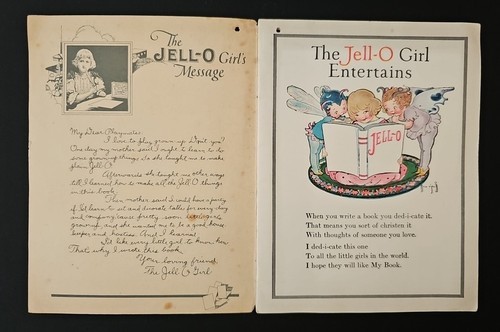 The
JELL-O Girl's
Message
My Dear Playmates:
I love to play grown up. Don't you?
One day my mother said I ought to learn to do
some grown-up things. So she taught me to make
plain Jell-O.
Afterwards she taught me other ways
till I learned how to make all the Jell-O things
in this book.
Then mother said I could have a party
if I'd learn to set and decorate tables for every day
and company, cause pretty soon I'd be
grown up, and she wanted me to be a good house
keeper and hostess. And I learned.
I'd like every little girl to know how.
That's why I wrote this book.
Your loving friend,
The Jell-O Girl
The Jell-O Girl
Entertains
JELL-O
When you write a book you ded-i-cate it.
That means you sort of christen it
With thoughts of someone you love.
I ded-i-cate this one
To all the little girls in the world.
I hope they will like My Book.